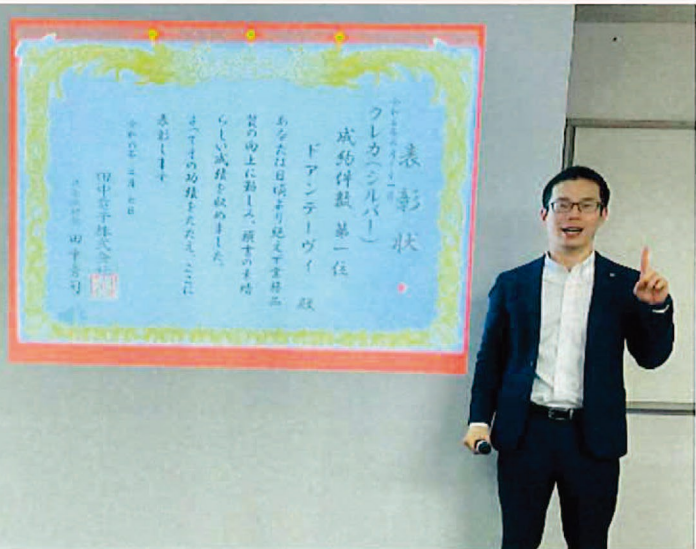 表彰状
クレカ(シルバー)
成約件数 第一位
ドアンテーヴィ 殿
あなたは日頃より絶えず業務品
質の向上に勤しみ、頭書の素晴
らしい成績を収めました。
よってその功績をたたえ、ここに
表彰します
令和六年 二月 七日
株式会社